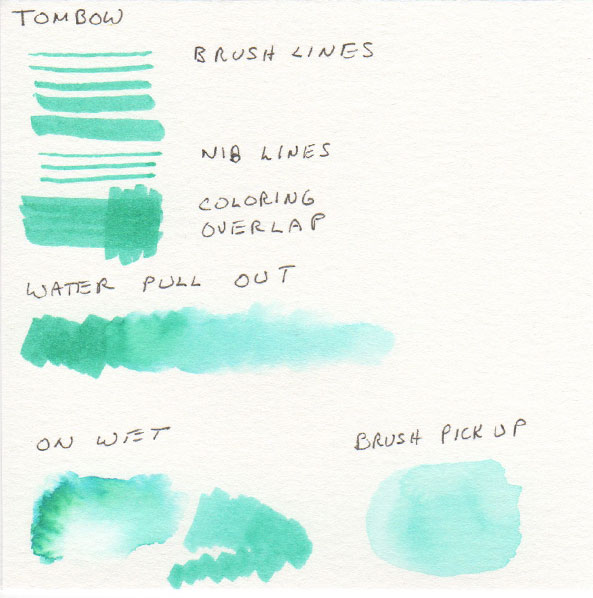 TOMBOW
BRUSH LINES
NIB LINES
COLORING
OVERLAP
WATER PULL OUT
ON WET
BRUSH PICK UP